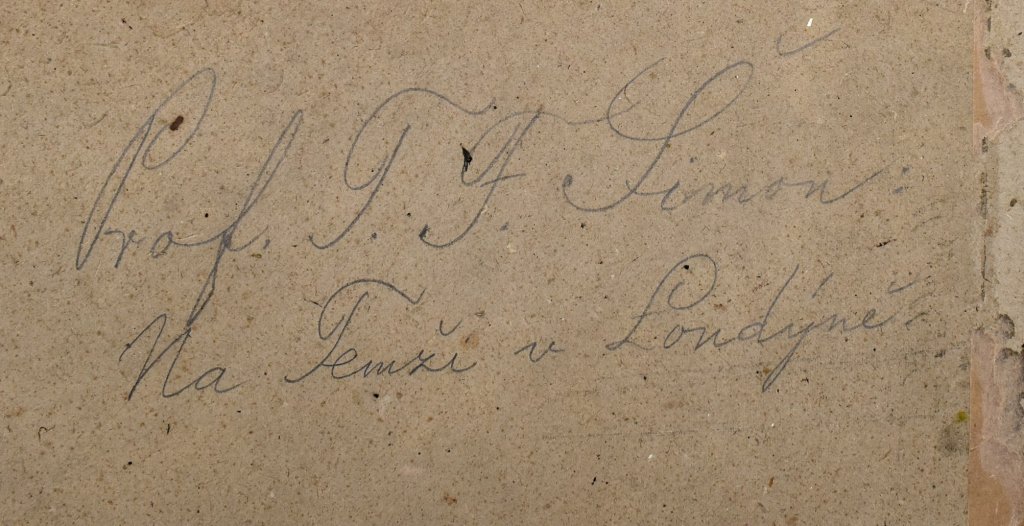 Prof. T. F. Šimon:
Na Temži v Londýně.